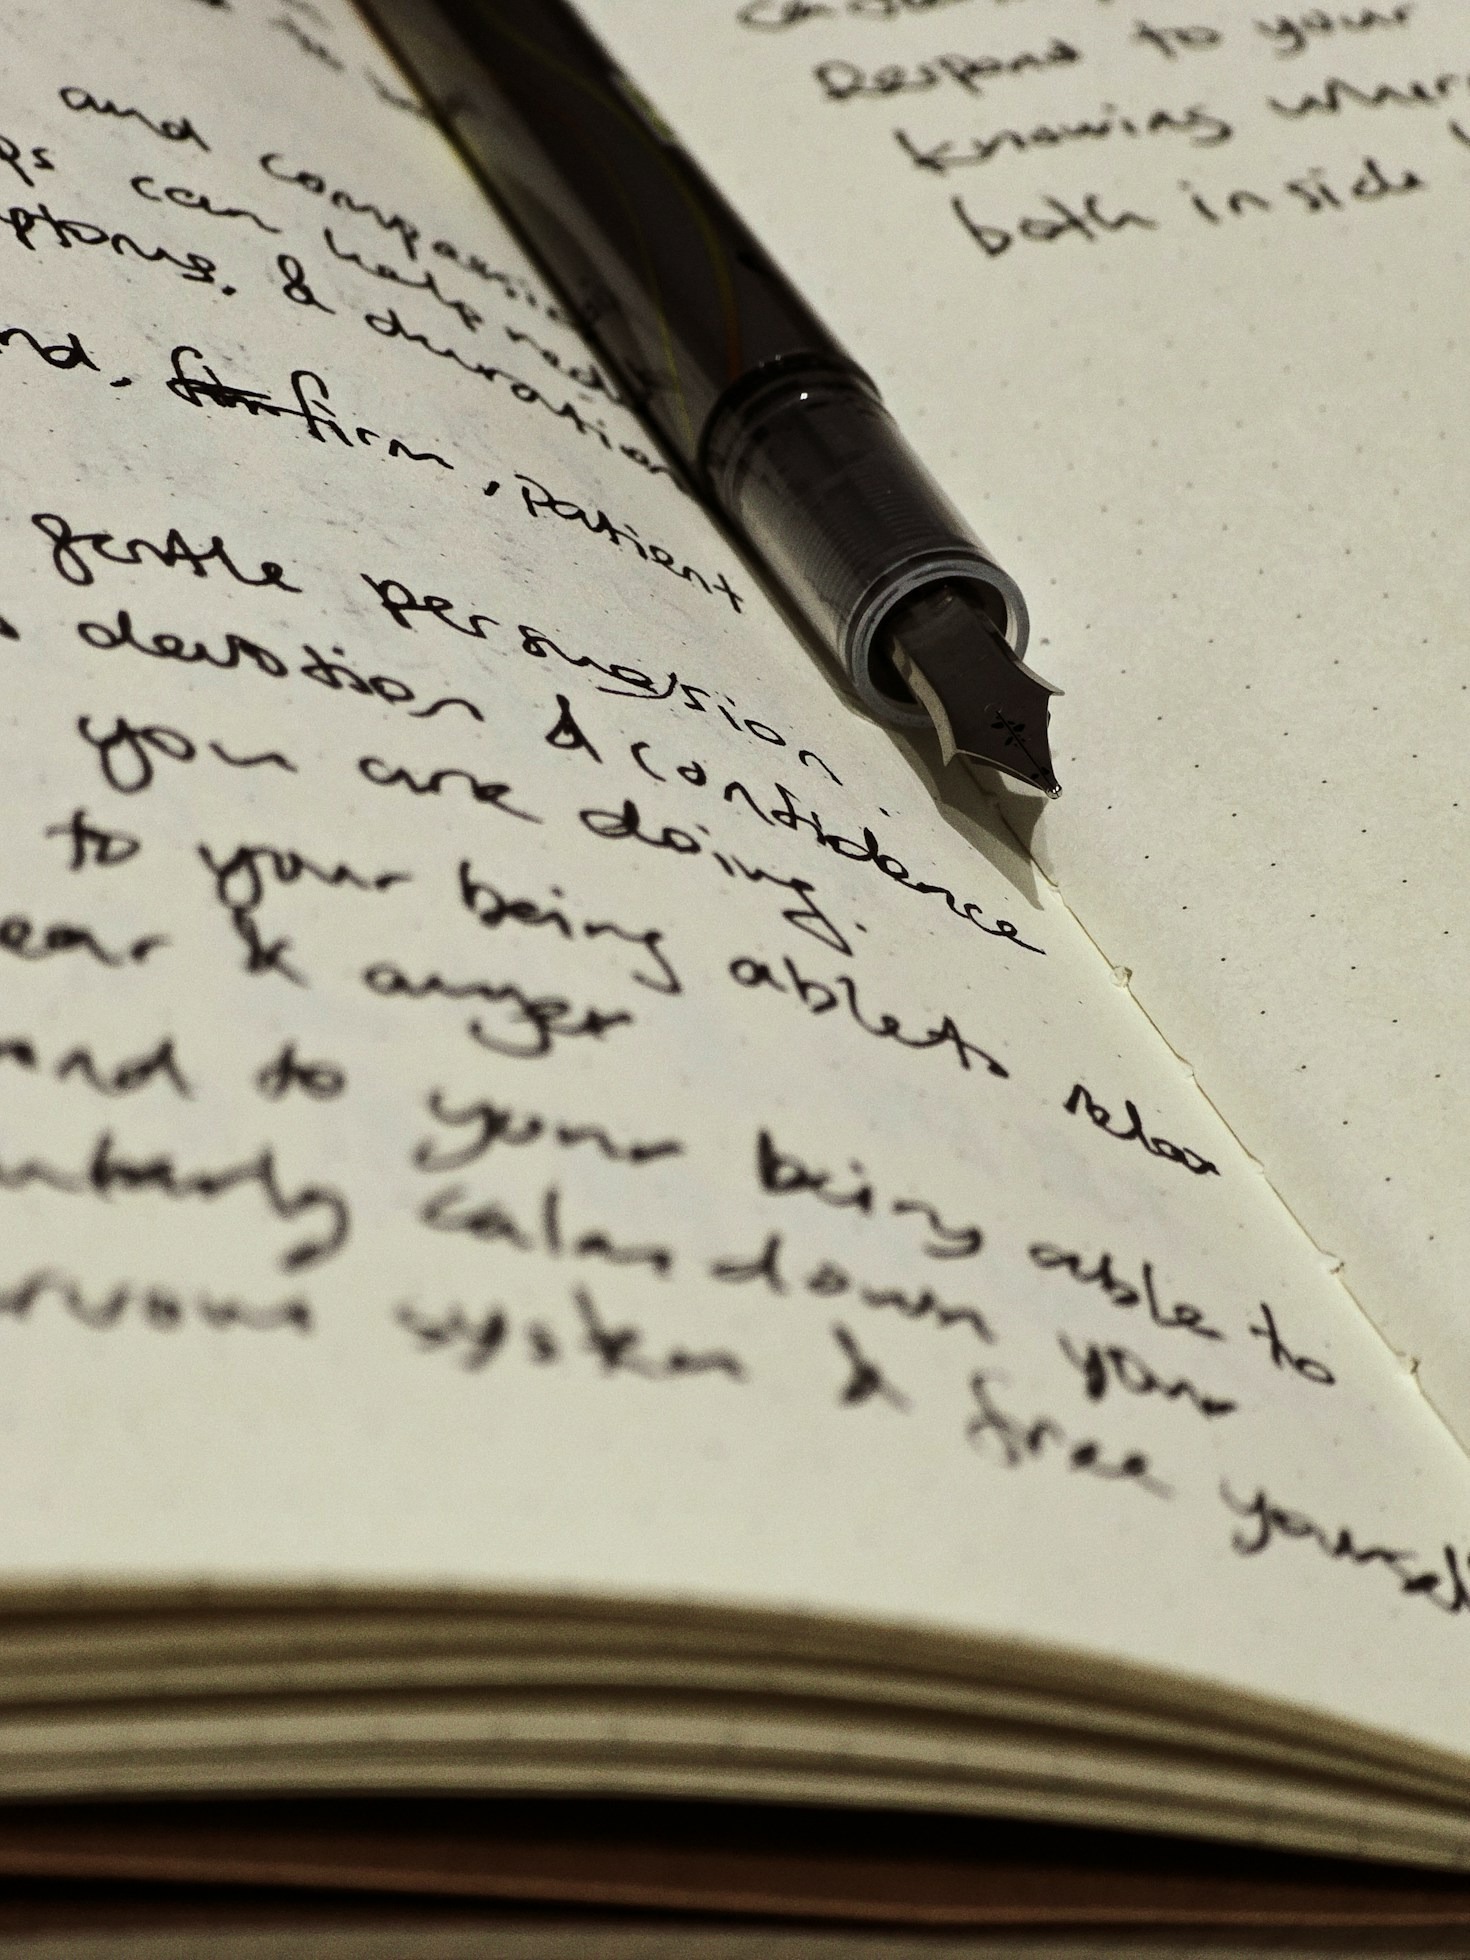 and
ps can help
ptoms. & duration
nd, firm, patient
gentle persuasion
devotion & confidence
you are doing.
to your being able to relax
ear & anger
and to your being able to
calm down your
rvous system & free yourself
Respond to your
knowing wher
both inside